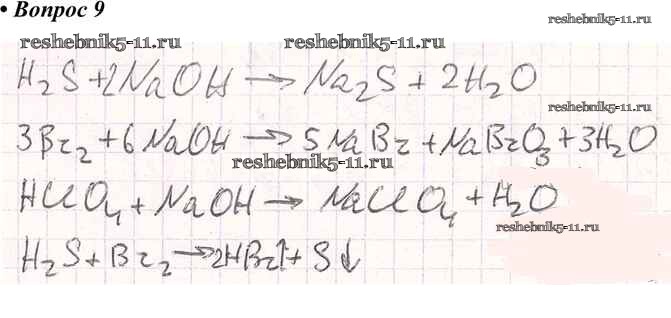 • Вопрос 9
reshebnik5-11.ru
reshebnik5-11.ru reshebnik5-11.ru
H₂S + 2NaOH → Na₂S + 2H₂O
reshebnik5-11.ru
3Br₂ + 6NaOH → 5NaBr + NaBrO₃ + 3H₂O
reshebnik5-11.ru
HClO₄ + NaOH → NaClO₄ + H₂O
reshebnik5-11.ru
H₂S + Br₂ → 2HBr↑ + S↓